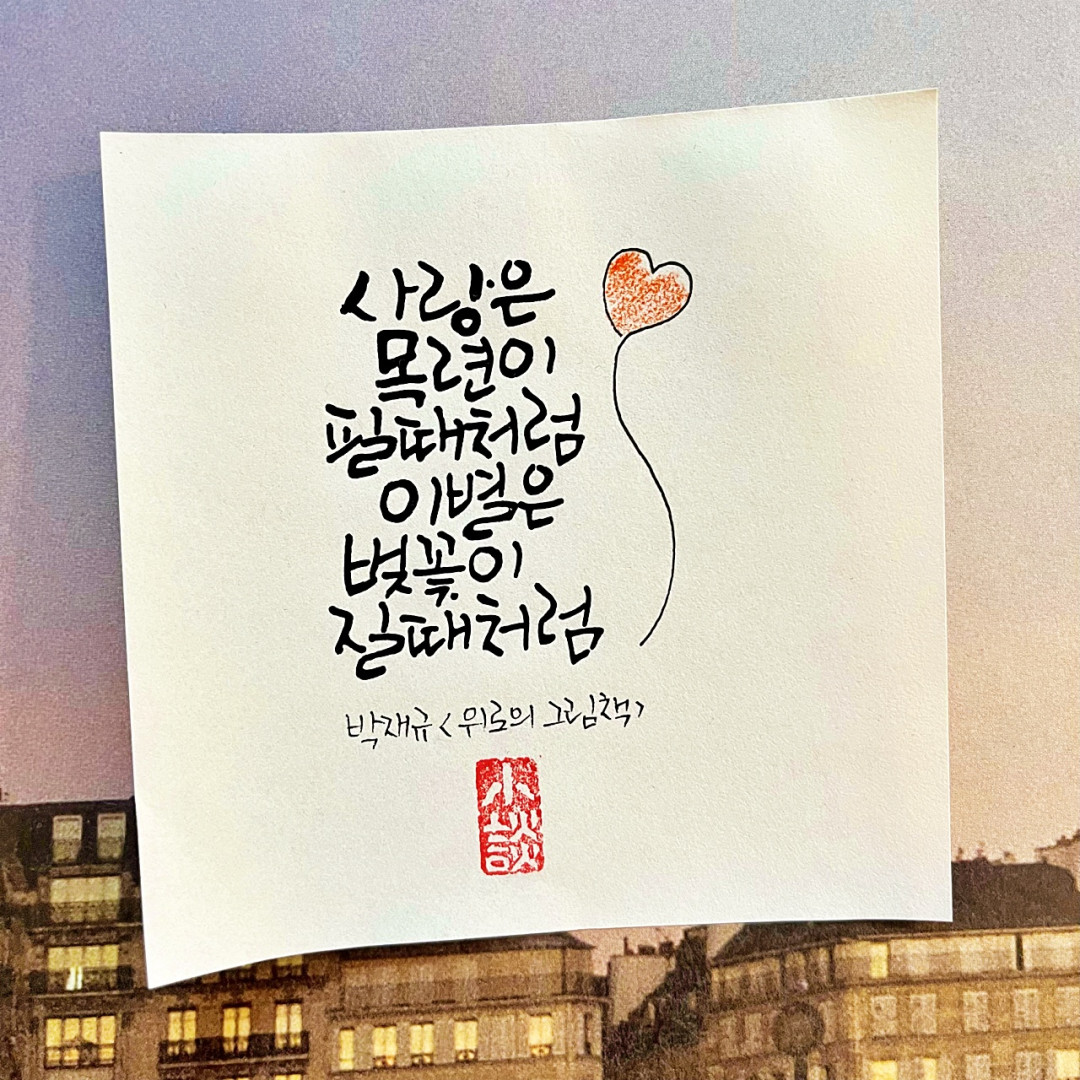 사랑은
목련이
필때처럼
이별은
벚꽃이
질때처럼
박재규 <위로의 그림책>
小談